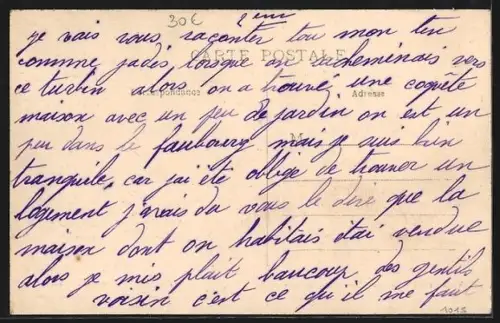 30€
2 eme
je vais vous raconter tou mon teu
comme jadis, lorsque on racheminais vers
CARTE POSTALE
ce turbin alors on a trouvé une coquête
Correspondance
Adresse
maison avec un peu de jardin on est un
peu dans le faubourg mais je suis bien
M
tranquile, car jai été obligé de trouver un
logement j'vais du vous le dire que la
maison dont on habitais étai vendue
alors je mis plait beaucoup des gentils
voisin c'est ce qu'il me faut